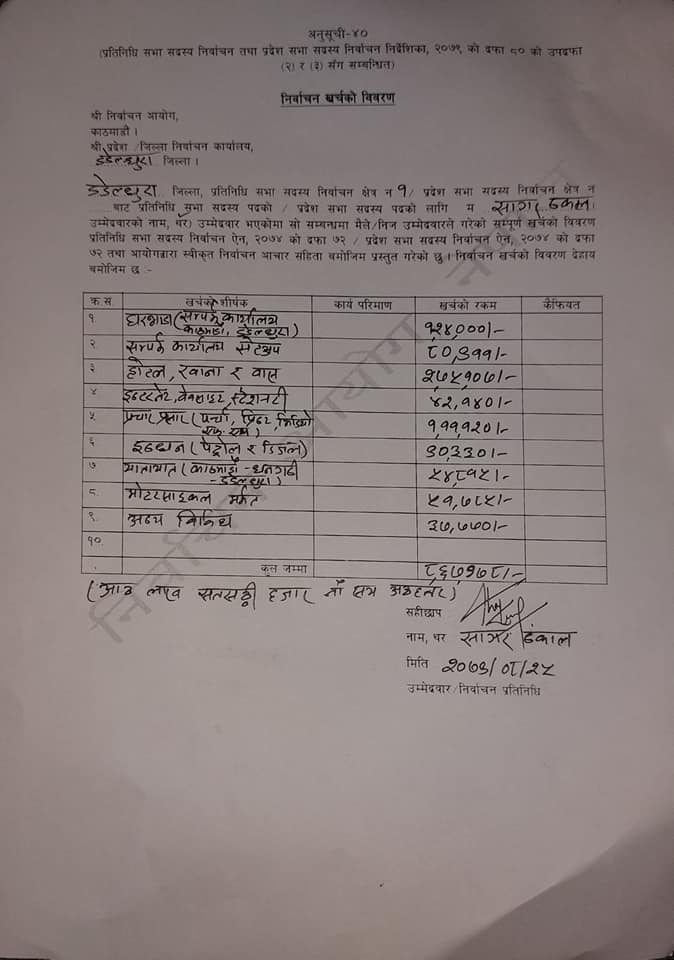 अनुसूची-४०
(प्रतिनिधि सभा सदस्य निर्वाचन तथा प्रदेश सभा सदस्य निर्वाचन निर्देशिका, २०७९ को दफा ८० को उपदफा
(२) र (३) सँग सम्बन्धित)
निर्वाचन खर्चको विवरण
श्री निर्वाचन आयोग,
काठमाडौं ।
श्री प्रदेश /जिल्ला निर्वाचन कार्यालय,
डडेल्धुरा जिल्ला ।
डडेल्धुरा जिल्ला, प्रतिनिधि सभा सदस्य निर्वाचन क्षेत्र नं १/ प्रदेश सभा सदस्य निर्वाचन क्षेत्र न
बाट प्रतिनिधि सभा सदस्य पदको / प्रदेश सभा सदस्य पदको लागि म सागर ढकाल
उम्मेदवारको नाम, थर) उम्मेदवार भएकोमा सो सम्बन्धमा मैले/निज उम्मेदवारले गरेको सम्पूर्ण खर्चको विवरण
प्रतिनिधि सभा सदस्य निर्वाचन ऐन, २०७४ को दफा ७२ / प्रदेश सभा सदस्य निर्वाचन ऐन, २०७४ को दफा
७२ तथा आयोगद्वारा स्वीकृत निर्वाचन आचार संहिता बमोजिम प्रस्तुत गरेको छु । निर्वाचन खर्चको विवरण देहाय
बमोजिम छ :-
क्र.स. खर्चको शीर्षक कार्य परिमाण खर्चको रकम कैफियत
१. घरभाडा (सम्पर्क कार्यालय काठमाडौं, डडेल्धुरा) १,२४,०००/-
२ सम्पर्क कार्यालय सेटअप ८०,३११/-
३ होटल, खाना र बास २,७५,१०७/-
४ इन्टरनेट, वेबसाइट, स्टेशनरी ४२,१४०/-
५ प्रचार प्रसार (पर्चा, प्रिन्ट, भिडियो ) १,११,१२०/-
६ इन्धन (पेट्रोल र डिजल) ३०,३३०/-
७ यातायात (काठमाडौं - धनगढी - डडेल्धुरा) ५४,८१५/-
८ मोटरसाइकल मर्मत ५१,७८५/-
९ अन्य विविध ३७,५७०/-
१०.
कुल जम्मा ८,६७,१७८/-
(आठ लाख सतसठ्ठी हजार सय अठहत्तर)
सहीछाप
नाम, थर सागर ढकाल
मिति २०७९/०८/२५
उम्मेदवार/निर्वाचन प्रतिनिधि
निर्वाचन आयोग नेपाल